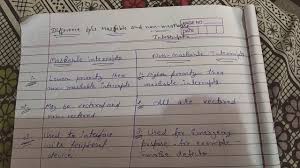 Difference b/w Maskable and non-maskable
Interrupts
PAGE NO
DATE
Maskable interrupts
Non-maskable Interrupts
1. Lower priority than
non maskable interrupts
1. Higher priority than
maskable interrupts
2. May be vectored and
non-vectored
2. All are vectored
3. Used to interface
with peripheral
device
3. Used for emergency
purpose - for example